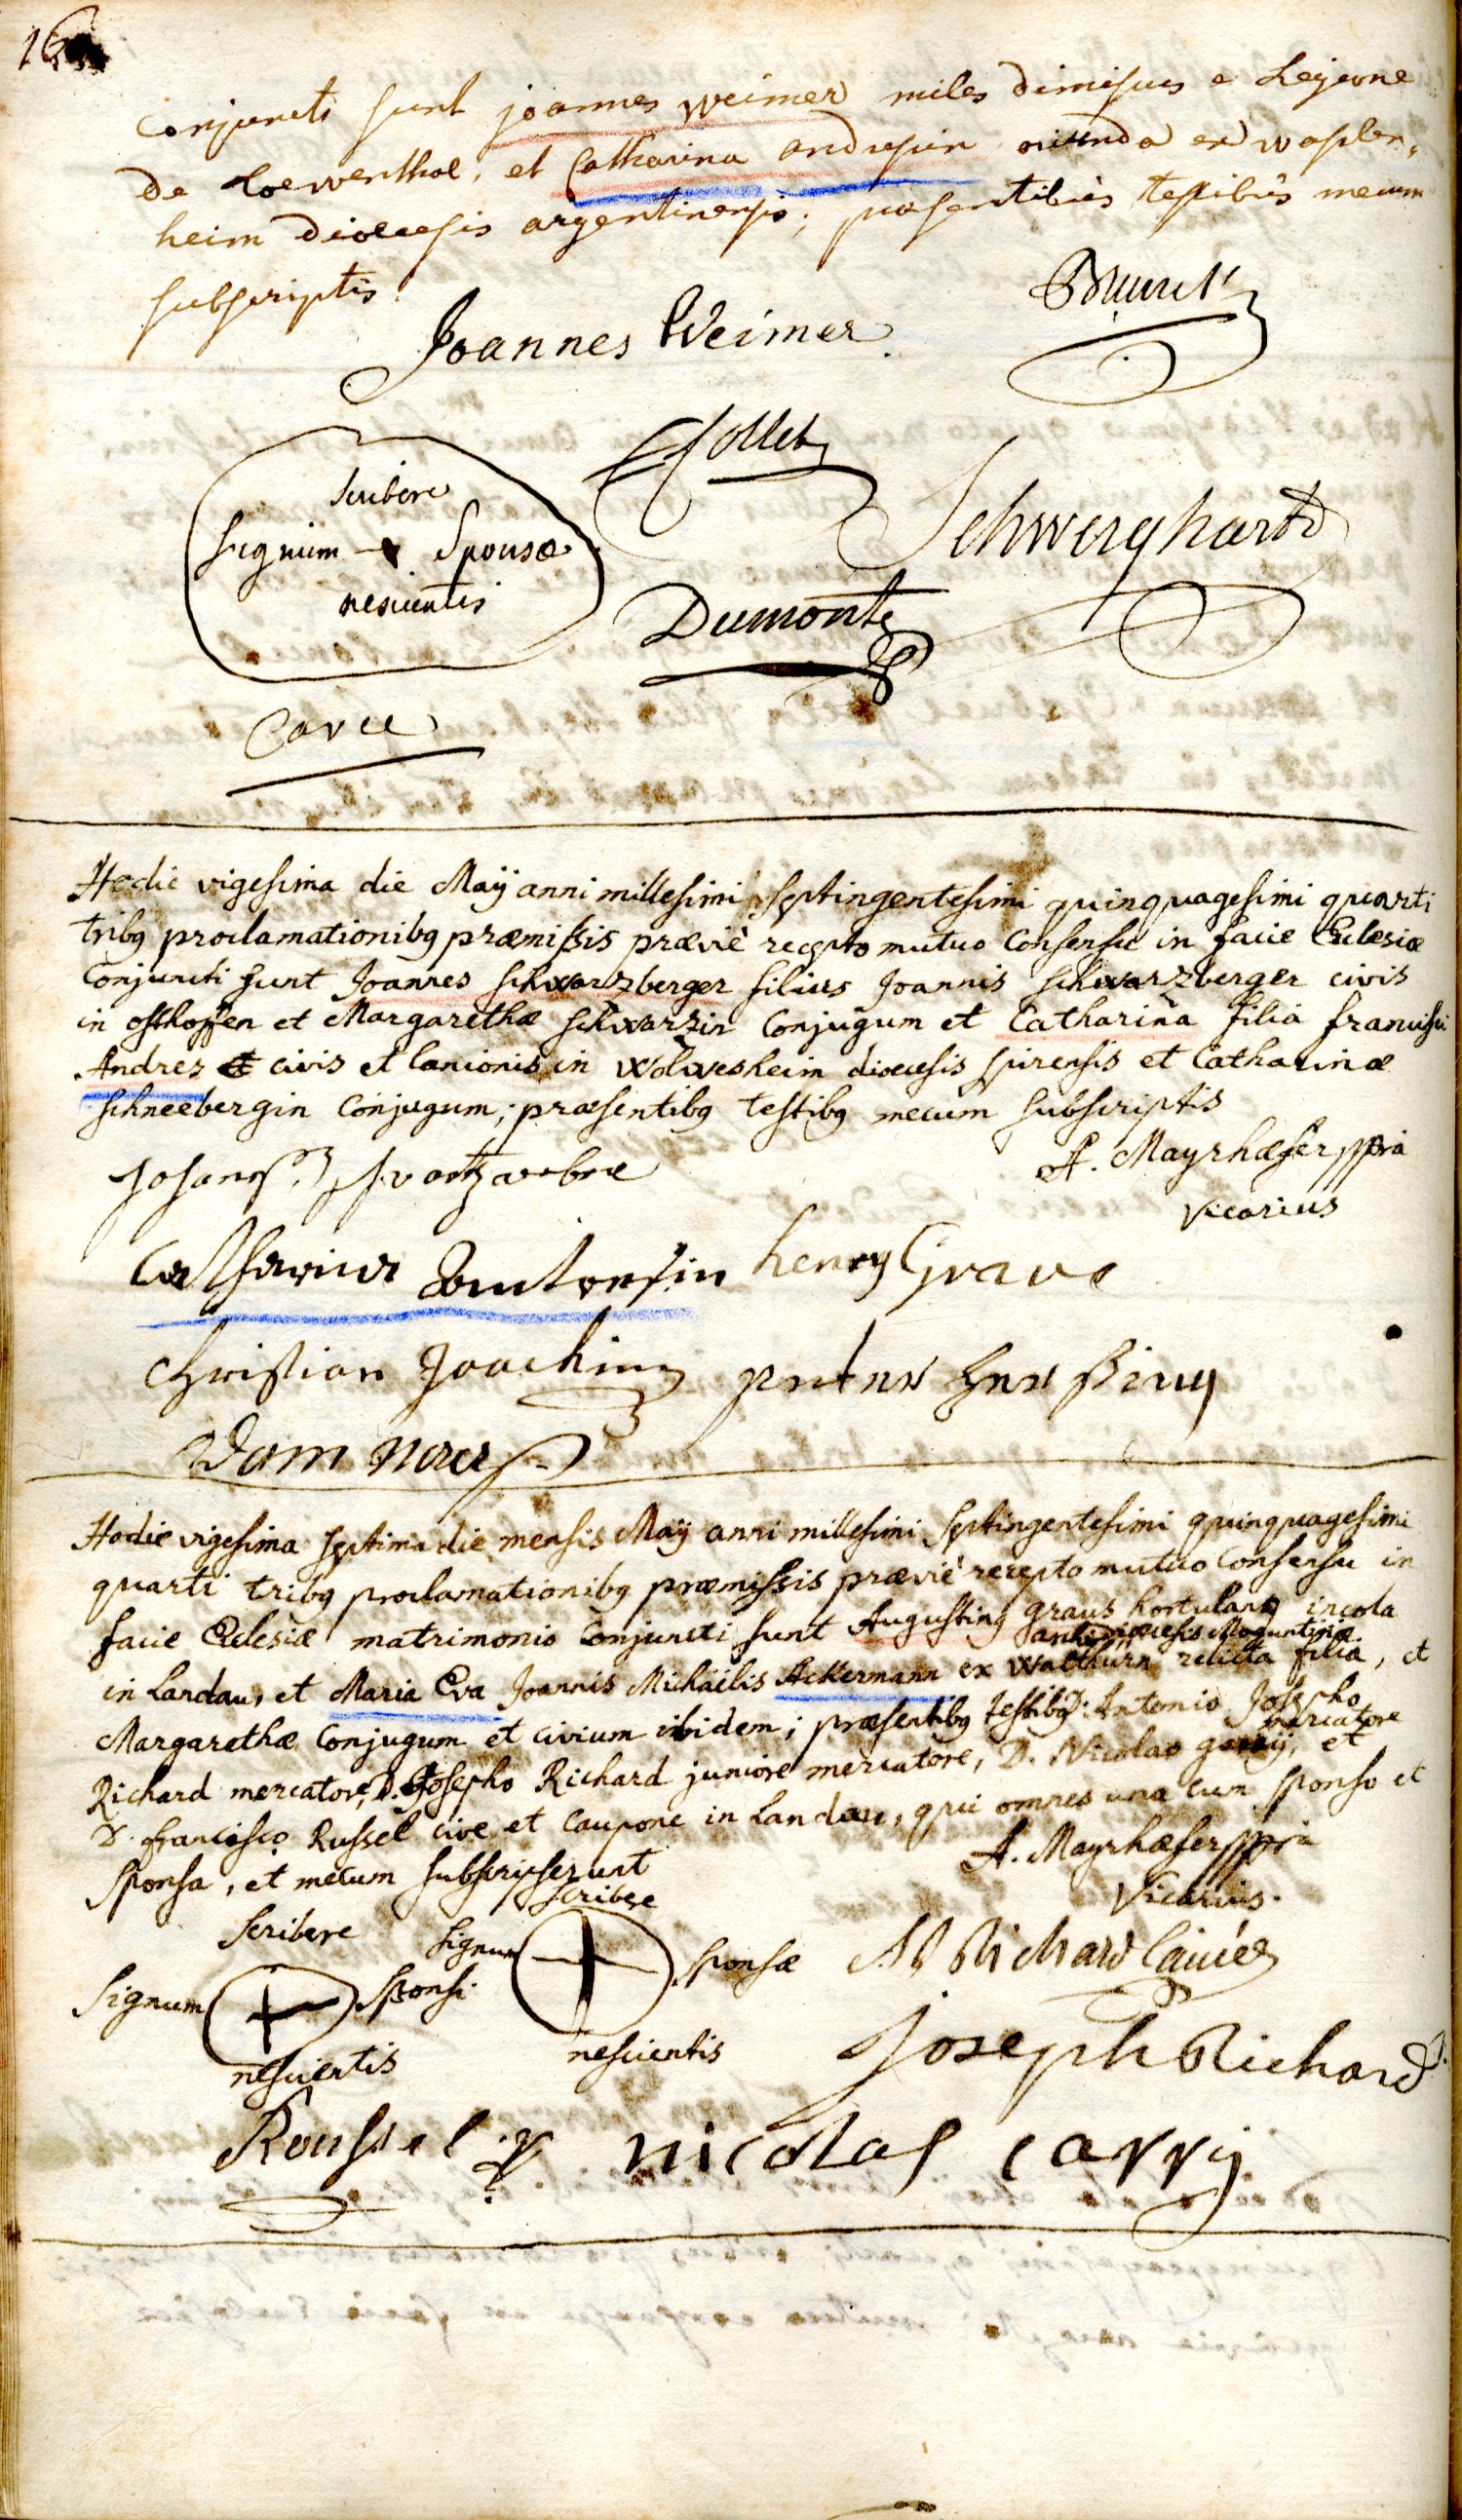 16
Conjuncti sunt joannes weimer miles dimissus e Legione
de Loewenthal, et Catharina andresin oriunda ex waslen,
heim dioecesis argentinensis; praesentibus testibus mecum
subscriptis
Joannes Weimer
Collet
scribere
signum Sponsae
nescientis
Schweyhardt
Dumonte
Caree
Hodie vigesima die Maÿ anni millesimi septingentesimi quinquagesimi quarti
tribq proclamationibq præmissis præviè recepto mutuo Consensu in facie Eclesiæ
Conjuncti sunt Joannes schwarzberger filius Joannis schwarzberger civis
in osthoffen et Margarethæ schwarzin Conjugum et Catharina filia francisci
Andres civis et lanionis in wolvesheim dioecesis spirensis et Catharinæ
schneebergin Conjugum; præsentibq testibq mecum subscriptis
A. Mayrhæfer ppria
vicarius
henry Grave
Christian Joachim
Hodie vigesima septima die mensis Maÿ anni millesimi septingentesimi quinquagesimi
quarti tribq proclamationibq præmissis præviè recepto mutuo Consensu in
facie Eclesiæ matrimonio Conjuncti sunt Augustinq graus hortulanq incola
in Landau, et Maria Eva Joannis Michäelis Ackermann ex walthürn relicta filia, et
Margarethæ Conjugum et civium ibidem; præsentibq testibq D: Antonio Josepho
Richard mercatore, D. Josepho Richard juniore mercatore, D. Nicolao mercatore et
D. francisco Russel cive et Caupone in Landau, qui omnes una cum sponso et
Sponsa, et mecum subscripserunt
A. Mayrhæfer ppria
Vicarius.
Scribere
Signum Sponsi
nescientis
scribere
signum sponsæ
nescientis
Richard l'ainé
Joseph Richard
Roussel
nicolas carrÿ